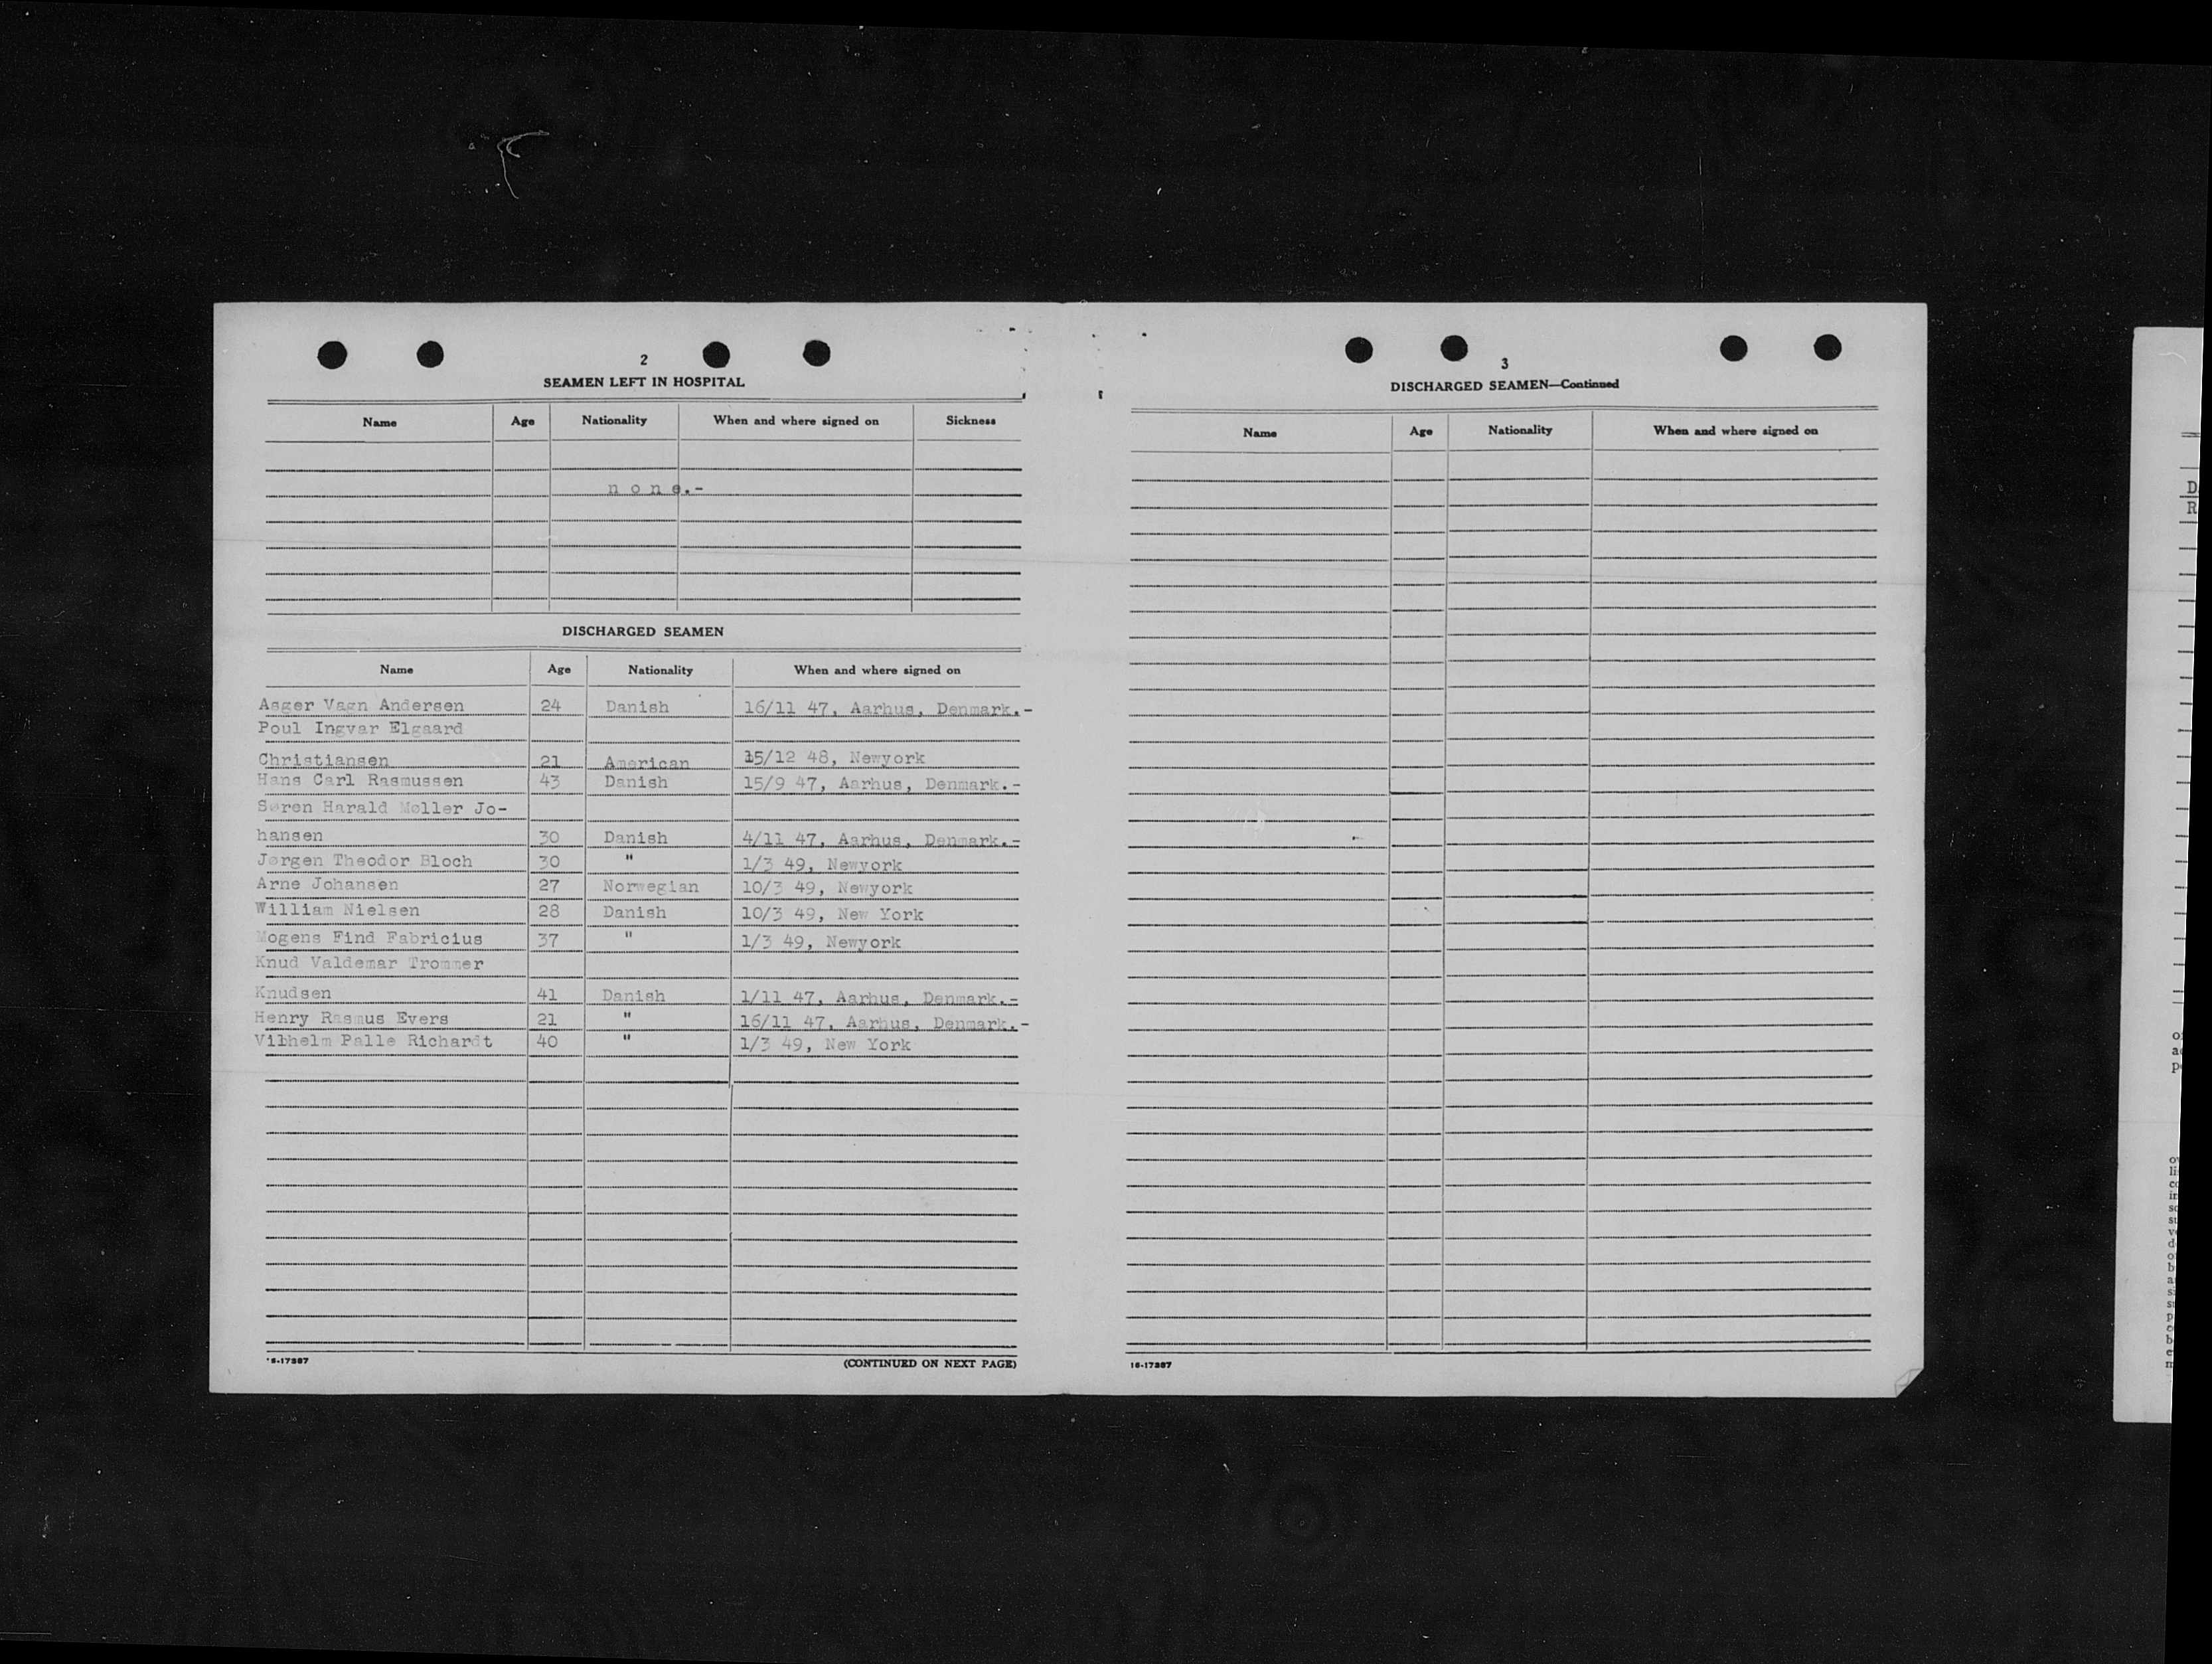 2
SEAMEN LEFT IN HOSPITAL
Name Age Nationality When and where signed on Sickness
n o n e.-
DISCHARGED SEAMEN
Name Age Nationality When and where signed on
Asger Vagn Andersen 24 Danish 16/11 47, Aarhus, Denmark.-
Poul Ingvar Elgaard
Christiansen 21 American 15/12 48, Newyork
Hans Carl Rasmussen 43 Danish 15/9 47, Aarhus, Denmark.-
Søren Harald Møller Jo-
hansen 30 Danish 4/11 47, Aarhus, Denmark.-
Jørgen Theodor Bloch 30 " 1/3 49, Newyork
Arne Johansen 27 Norwegian 10/3 49, Newyork
William Nielsen 28 Danish 10/3 49, New York
Mogens Find Fabricius 37 " 1/3 49, Newyork
Knud Valdemar Trommer
Knudsen 41 Danish 1/11 47, Aarhus, Denmark.-
Henry Rasmus Evers 21 " 16/11 47, Aarhus, Denmark.-
Vilhelm Palle Richardt 40 " 1/3 49, New York
16-17387 (CONTINUED ON NEXT PAGE)
3
DISCHARGED SEAMEN—Continued
Name Age Nationality When and where signed on
16-17387
D
R